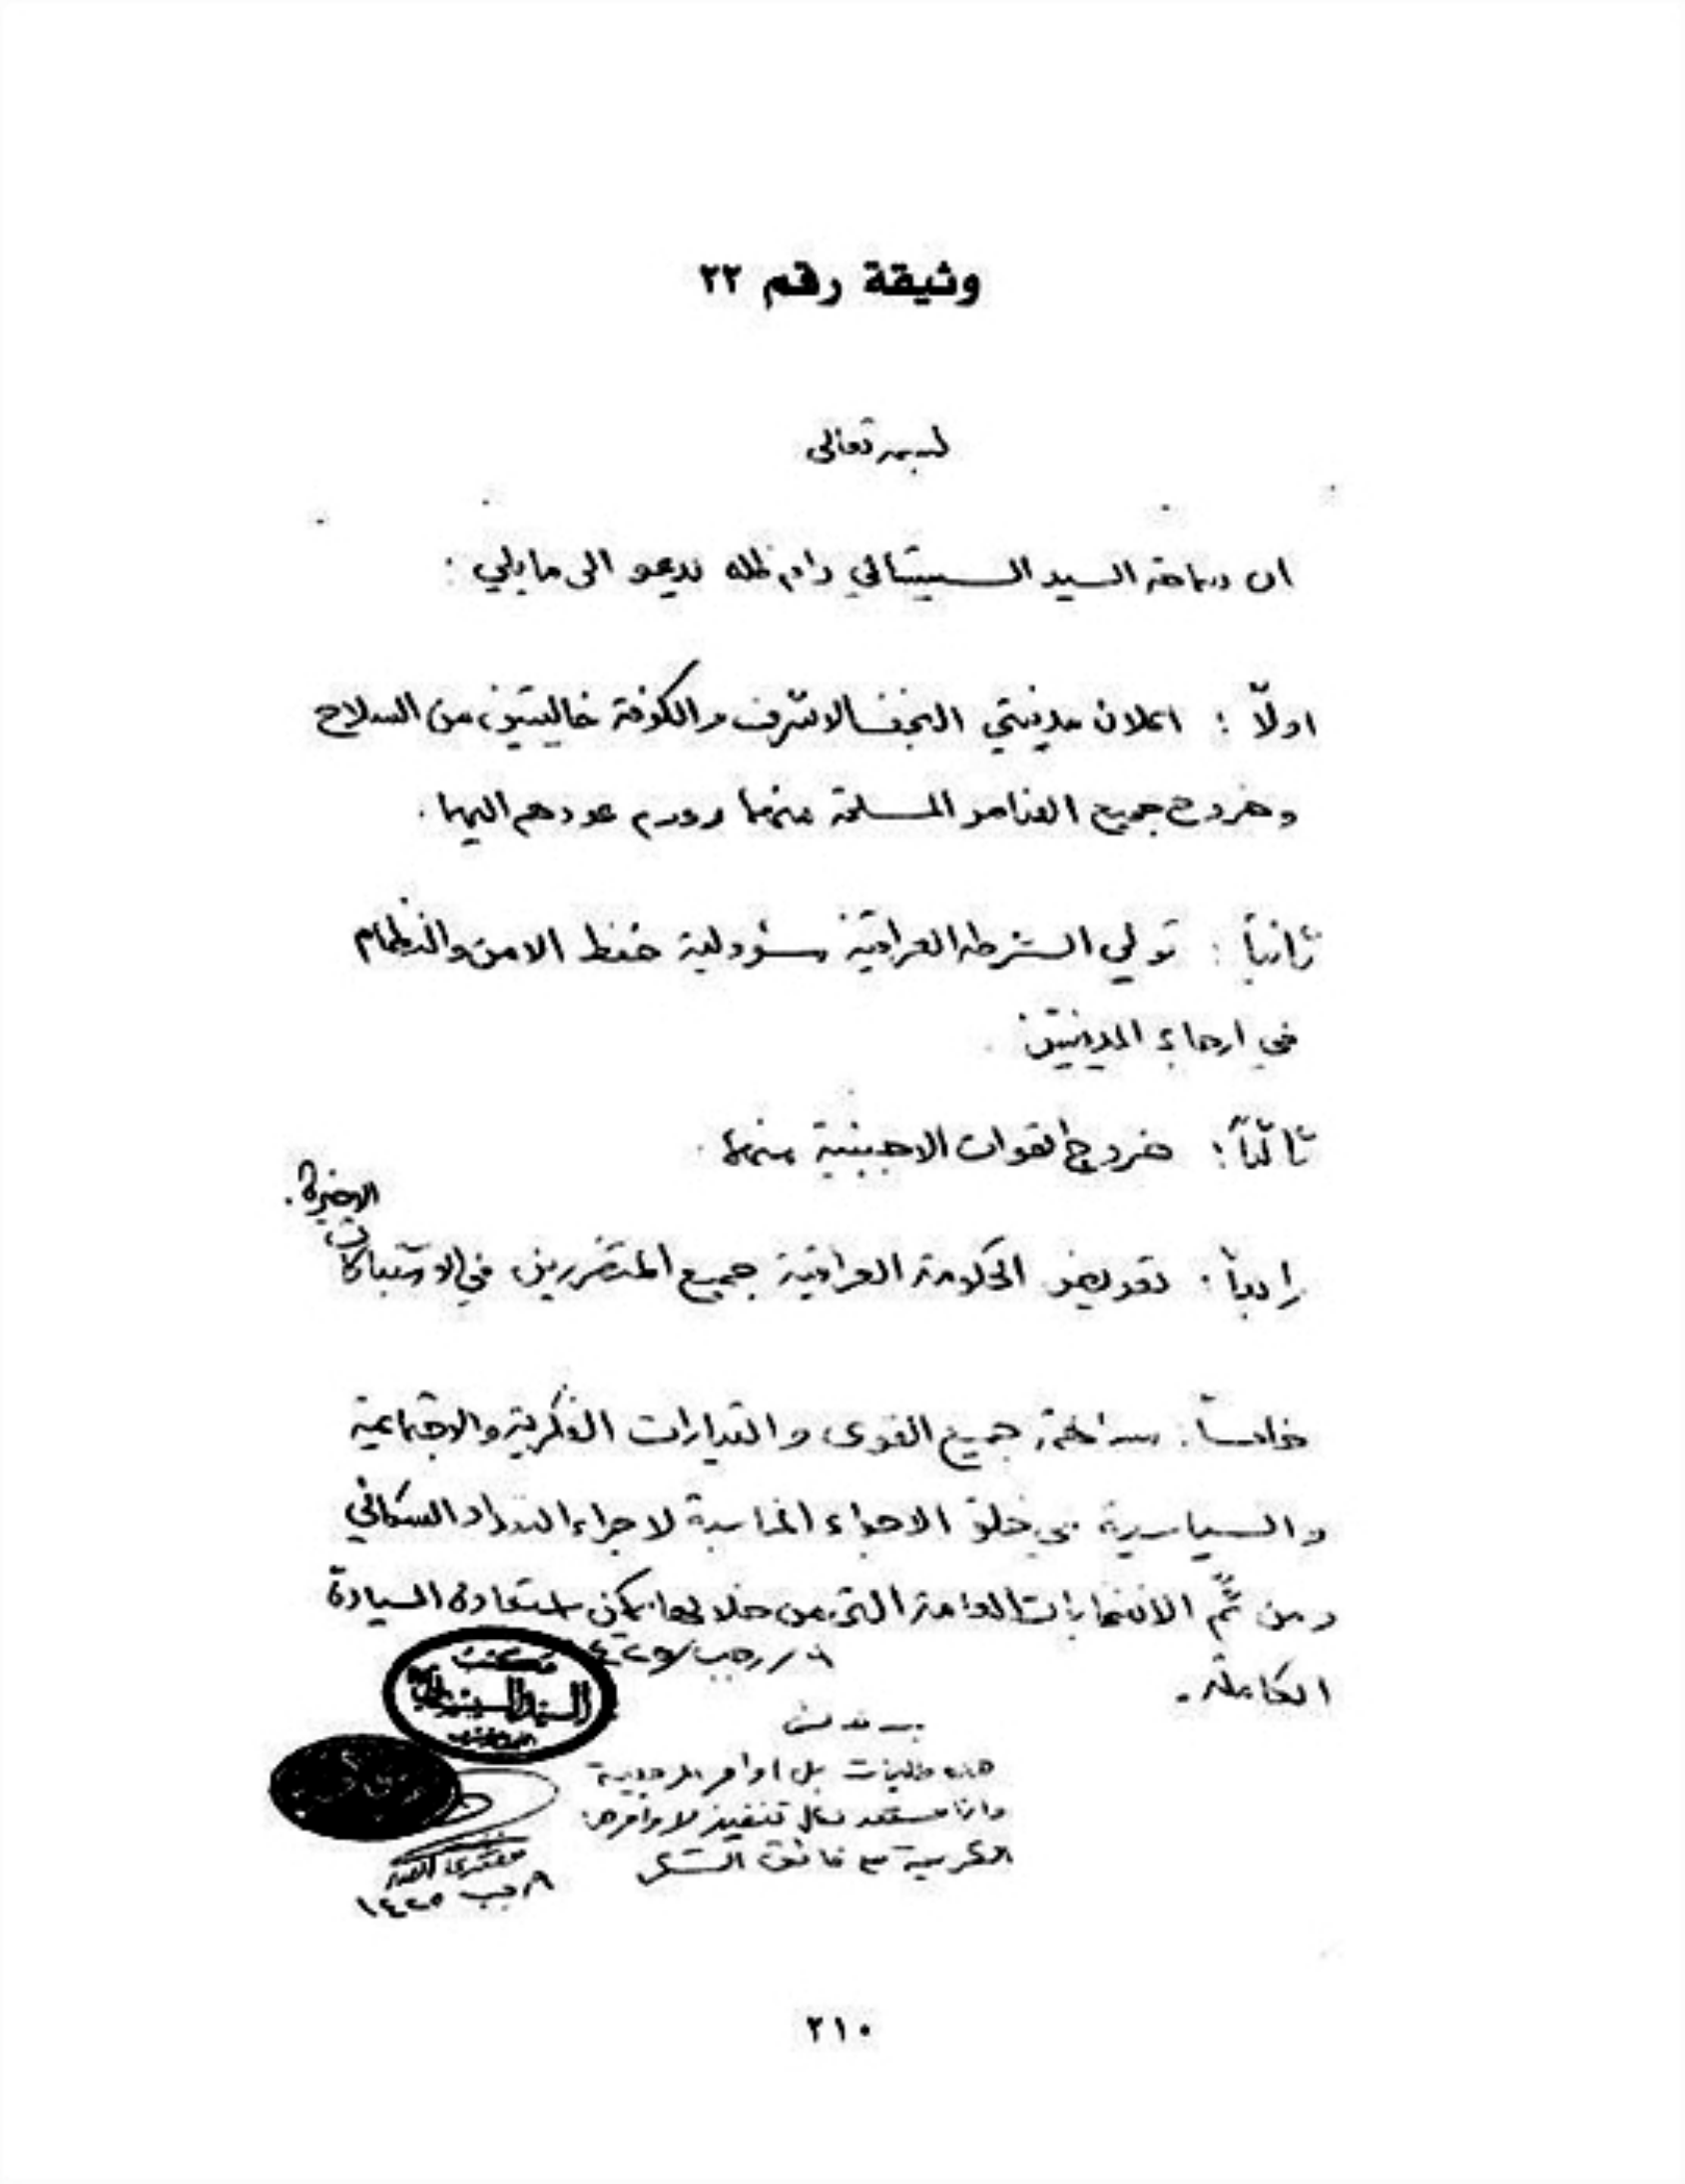 وثيقة رقم ٢٢
بسمه تعالى
ان سماحة السيد السيستاني دام ظله يدعو الى مايلي :
اولاً : اعلان مدينتي النجف الاشرف والكوفة خاليتين من السلاح
وخروج جميع العناصر المسلحة منهما وعدم عودهم اليهما .
ثانياً : تولي الشرطة العراقية مسؤولية حفظ الامن والنظام
في ارجاء المدينتين .
ثالثاً : خروج القوات الاجنبية منهما .
رابعاً : تعويض الحكومة العراقية جميع المتضررين في الاشتباكات
الاخيرة .
خامساً : مساهمة جميع القوى والتيارات الفكرية والاجتماعية
والسياسية في خلق الاجواء المناسبة لاجراء التعداد السكاني
ومن ثمّ الانتخابات العامة التي من خلالها يمكن استعادة السيادة
الكاملة .
٨ / رجب
مكتب
السيد السيستاني
هذه طلبات بل اوامر المرجعية
وانا مستعد لكل تنفيذ لاوامرها
مع فائق الشكر
مقتدى الصدر
٨ رجب ١٤٢٥
٢١٠